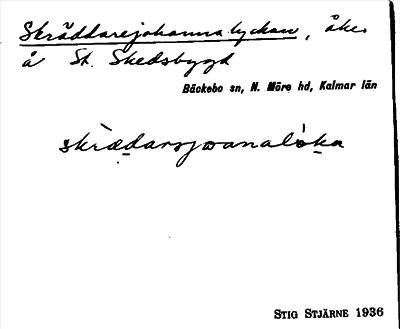 Skräddarejohannalyckan, åker
å St. Skedsbygd
Bäckebo sn, N. Möre hd, Kalmar län
skrædarsjoanaløka
STIG STJÄRNE 1936